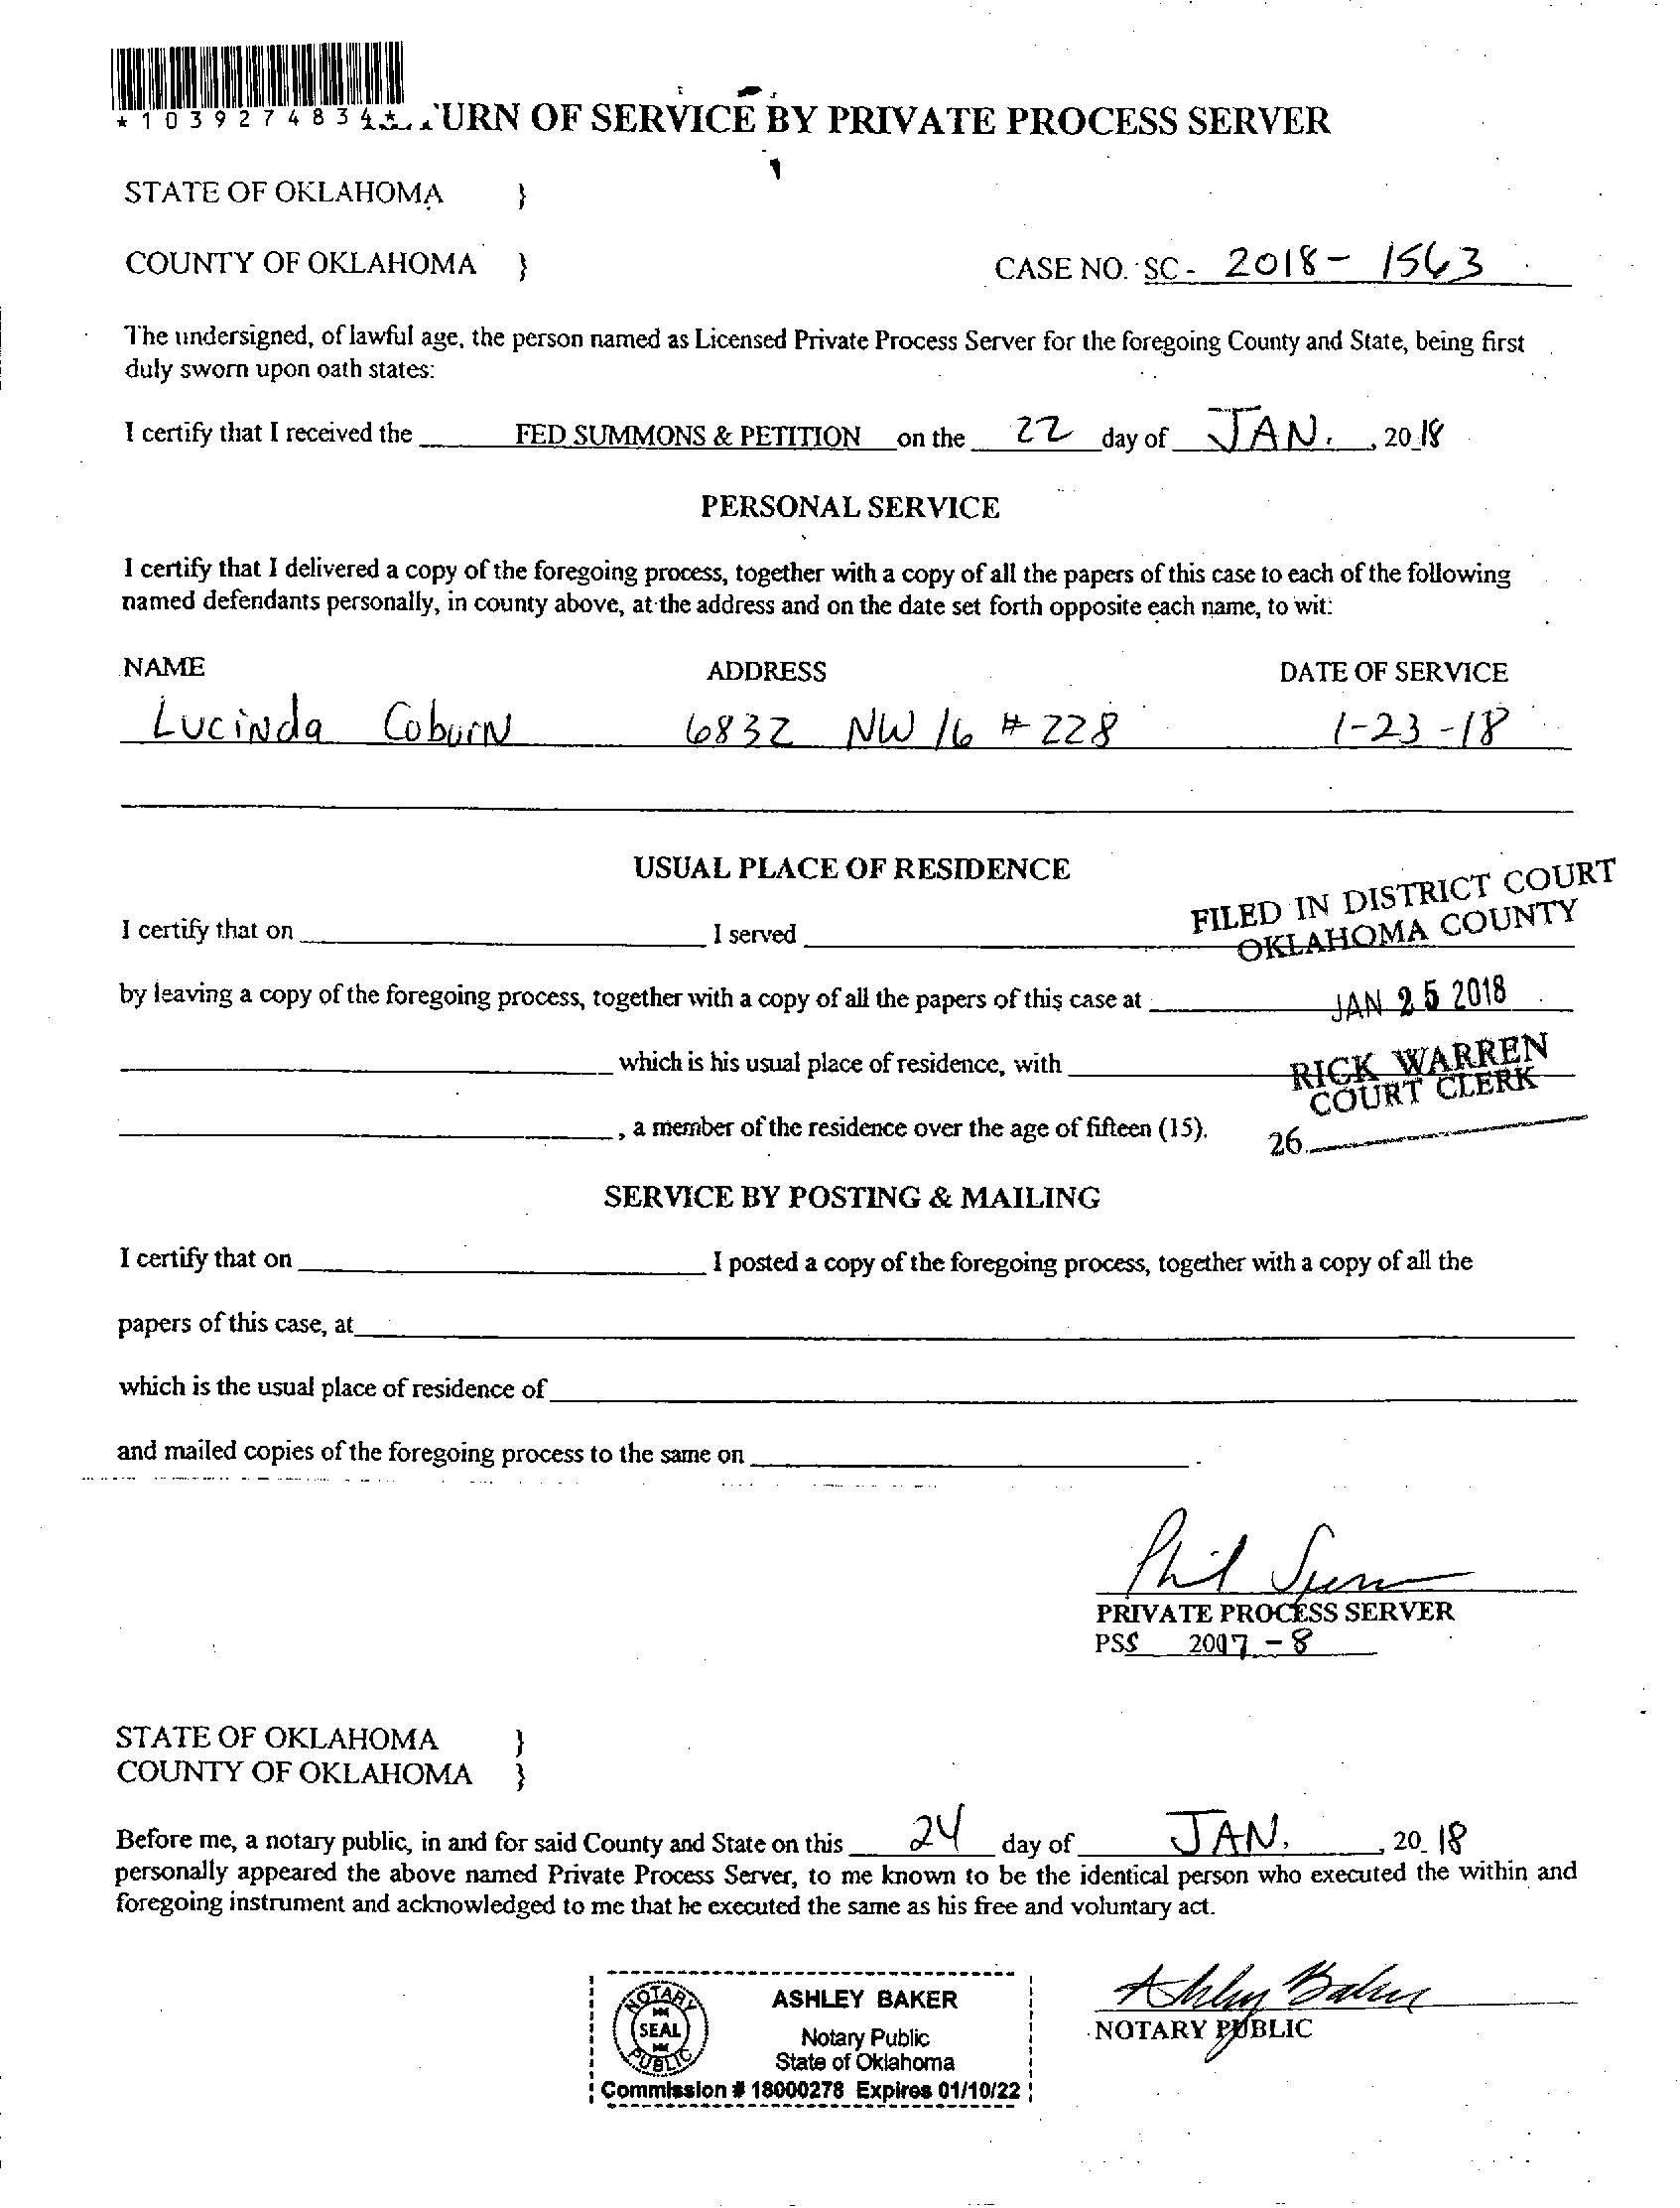 *1039274834*
'URN OF SERVICE BY PRIVATE PROCESS SERVER
STATE OF OKLAHOMA }
COUNTY OF OKLAHOMA } CASE NO. SC - 2018 - 1563
The undersigned, of lawful age, the person named as Licensed Private Process Server for the foregoing County and State, being first
duly sworn upon oath states:
I certify that I received the FED SUMMONS & PETITION on the 22 day of JAN. , 20 18
PERSONAL SERVICE
I certify that I delivered a copy of the foregoing process, together with a copy of all the papers of this case to each of the following
named defendants personally, in county above, at the address and on the date set forth opposite each name, to wit:
NAME ADDRESS DATE OF SERVICE
Lucinda Coburn 6832 NW 16 # 228 1-23-18
USUAL PLACE OF RESIDENCE
FILED IN DISTRICT COURT
OKLAHOMA COUNTY
I certify that on I served
by leaving a copy of the foregoing process, together with a copy of all the papers of this case at
JAN 25 2018
which is his usual place of residence, with
RICK WARREN
COURT CLERK
, a member of the residence over the age of fifteen (15).
26
SERVICE BY POSTING & MAILING
I certify that on I posted a copy of the foregoing process, together with a copy of all the
papers of this case, at
which is the usual place of residence of
and mailed copies of the foregoing process to the same on .
Phil
PRIVATE PROCESS SERVER
PSS 2017 - 8
STATE OF OKLAHOMA }
COUNTY OF OKLAHOMA }
Before me, a notary public, in and for said County and State on this 24 day of JAN. , 20 18
personally appeared the above named Private Process Server, to me known to be the identical person who executed the within and
foregoing instrument and acknowledged to me that he executed the same as his free and voluntary act.
Ashley Baker
NOTARY PUBLIC
NOTARY SEAL PUBLIC
ASHLEY BAKER
Notary Public
State of Oklahoma
Commission # 18000278 Expires 01/10/22